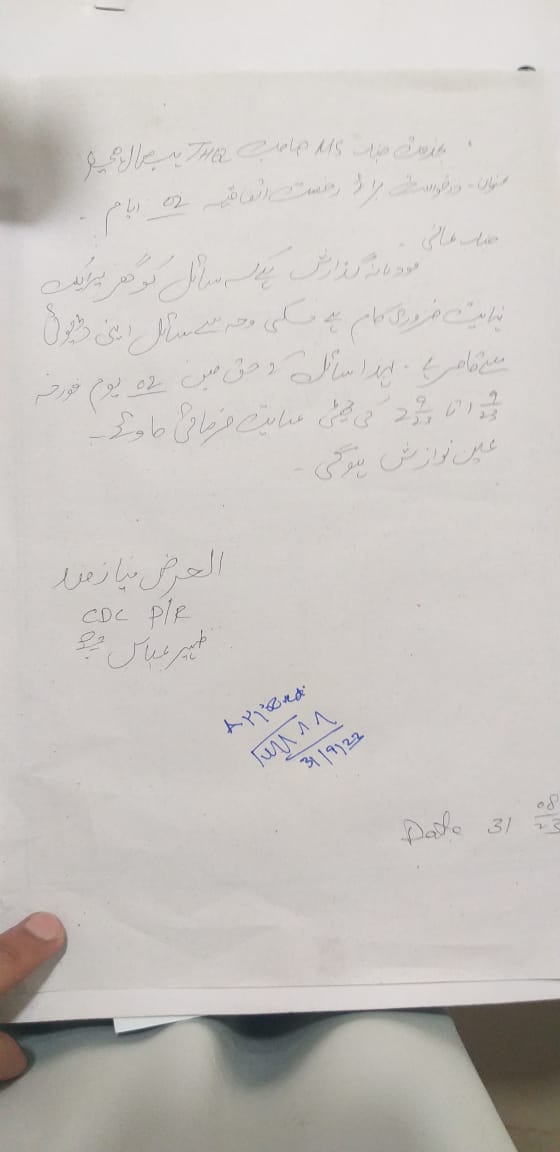 بخدمت جناب MS صاحب THQ ہسپتال
عنوان۔ درخواست برائے رخصت اتفاقیہ 02 ایام ۔
جناب عالی
مودبانہ گذارش ہیکہ سائل کو گھر پر ایک
نہایت ضروری کام ہے جسکی وجہ سے سائل اپنی ڈیوٹی
سے قاصر ہے ۔ لہذا سائل کے حق میں 02 یوم مورخہ
1 9/23 تا 2 9/23 کی چھٹی عنایت فرمائی جاوے ۔
عین نوازش ہوگی ۔
العرض نیازمند
CDC P/R
ظہیر عباس
Approved
31/9/23
Date 31 08/23